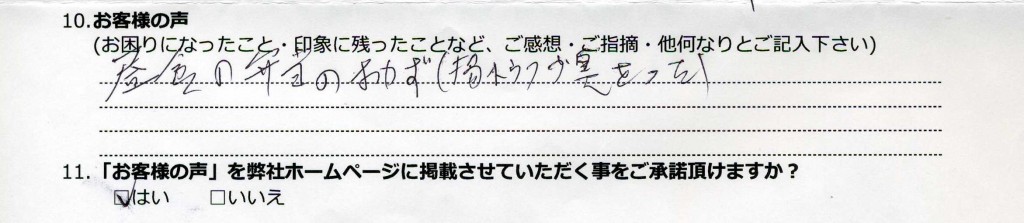 10.お客様の声
(お困りになったこと・印象に残ったことなど、ご感想・ご指摘・他何なりとご記入下さい)
昼食の弁当のおかず(揚トウフが異をった)
11.「お客様の声」を弊社ホームページに掲載させていただく事をご承諾頂けますか？
☑はい □いいえ